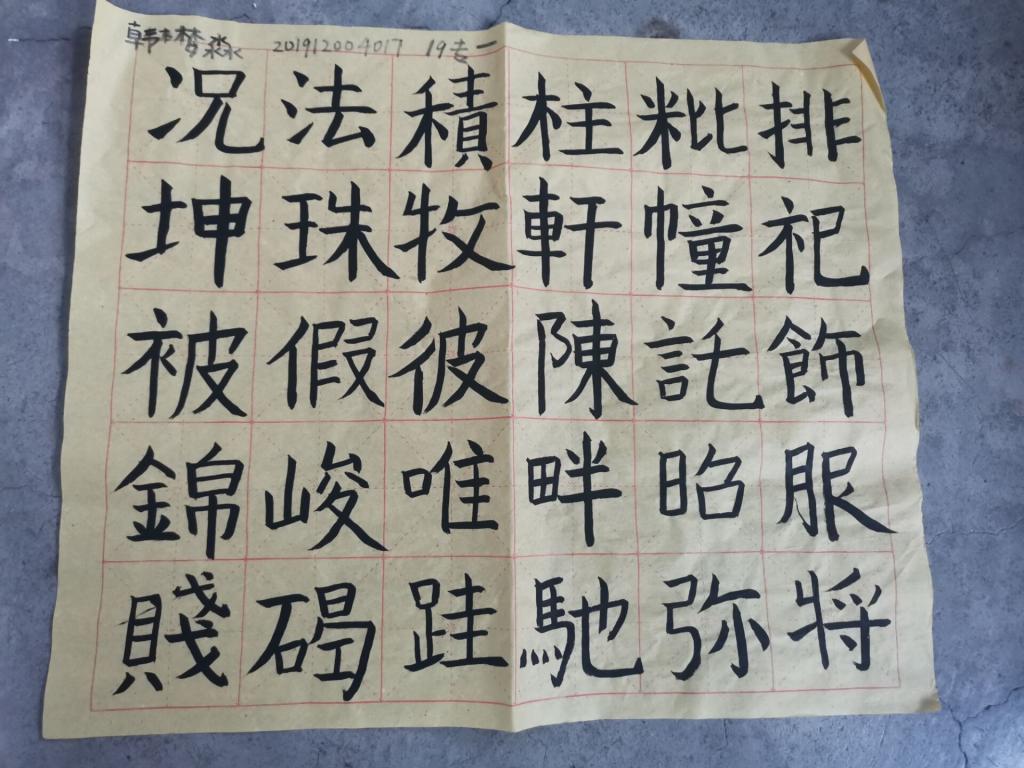 韩梦淼 201912004017 19专一
况法積柱粃排
坤珠牧軒幢祀
被假彼陳託飾
錦峻唯畔昭服
賤碣跬馳弥将